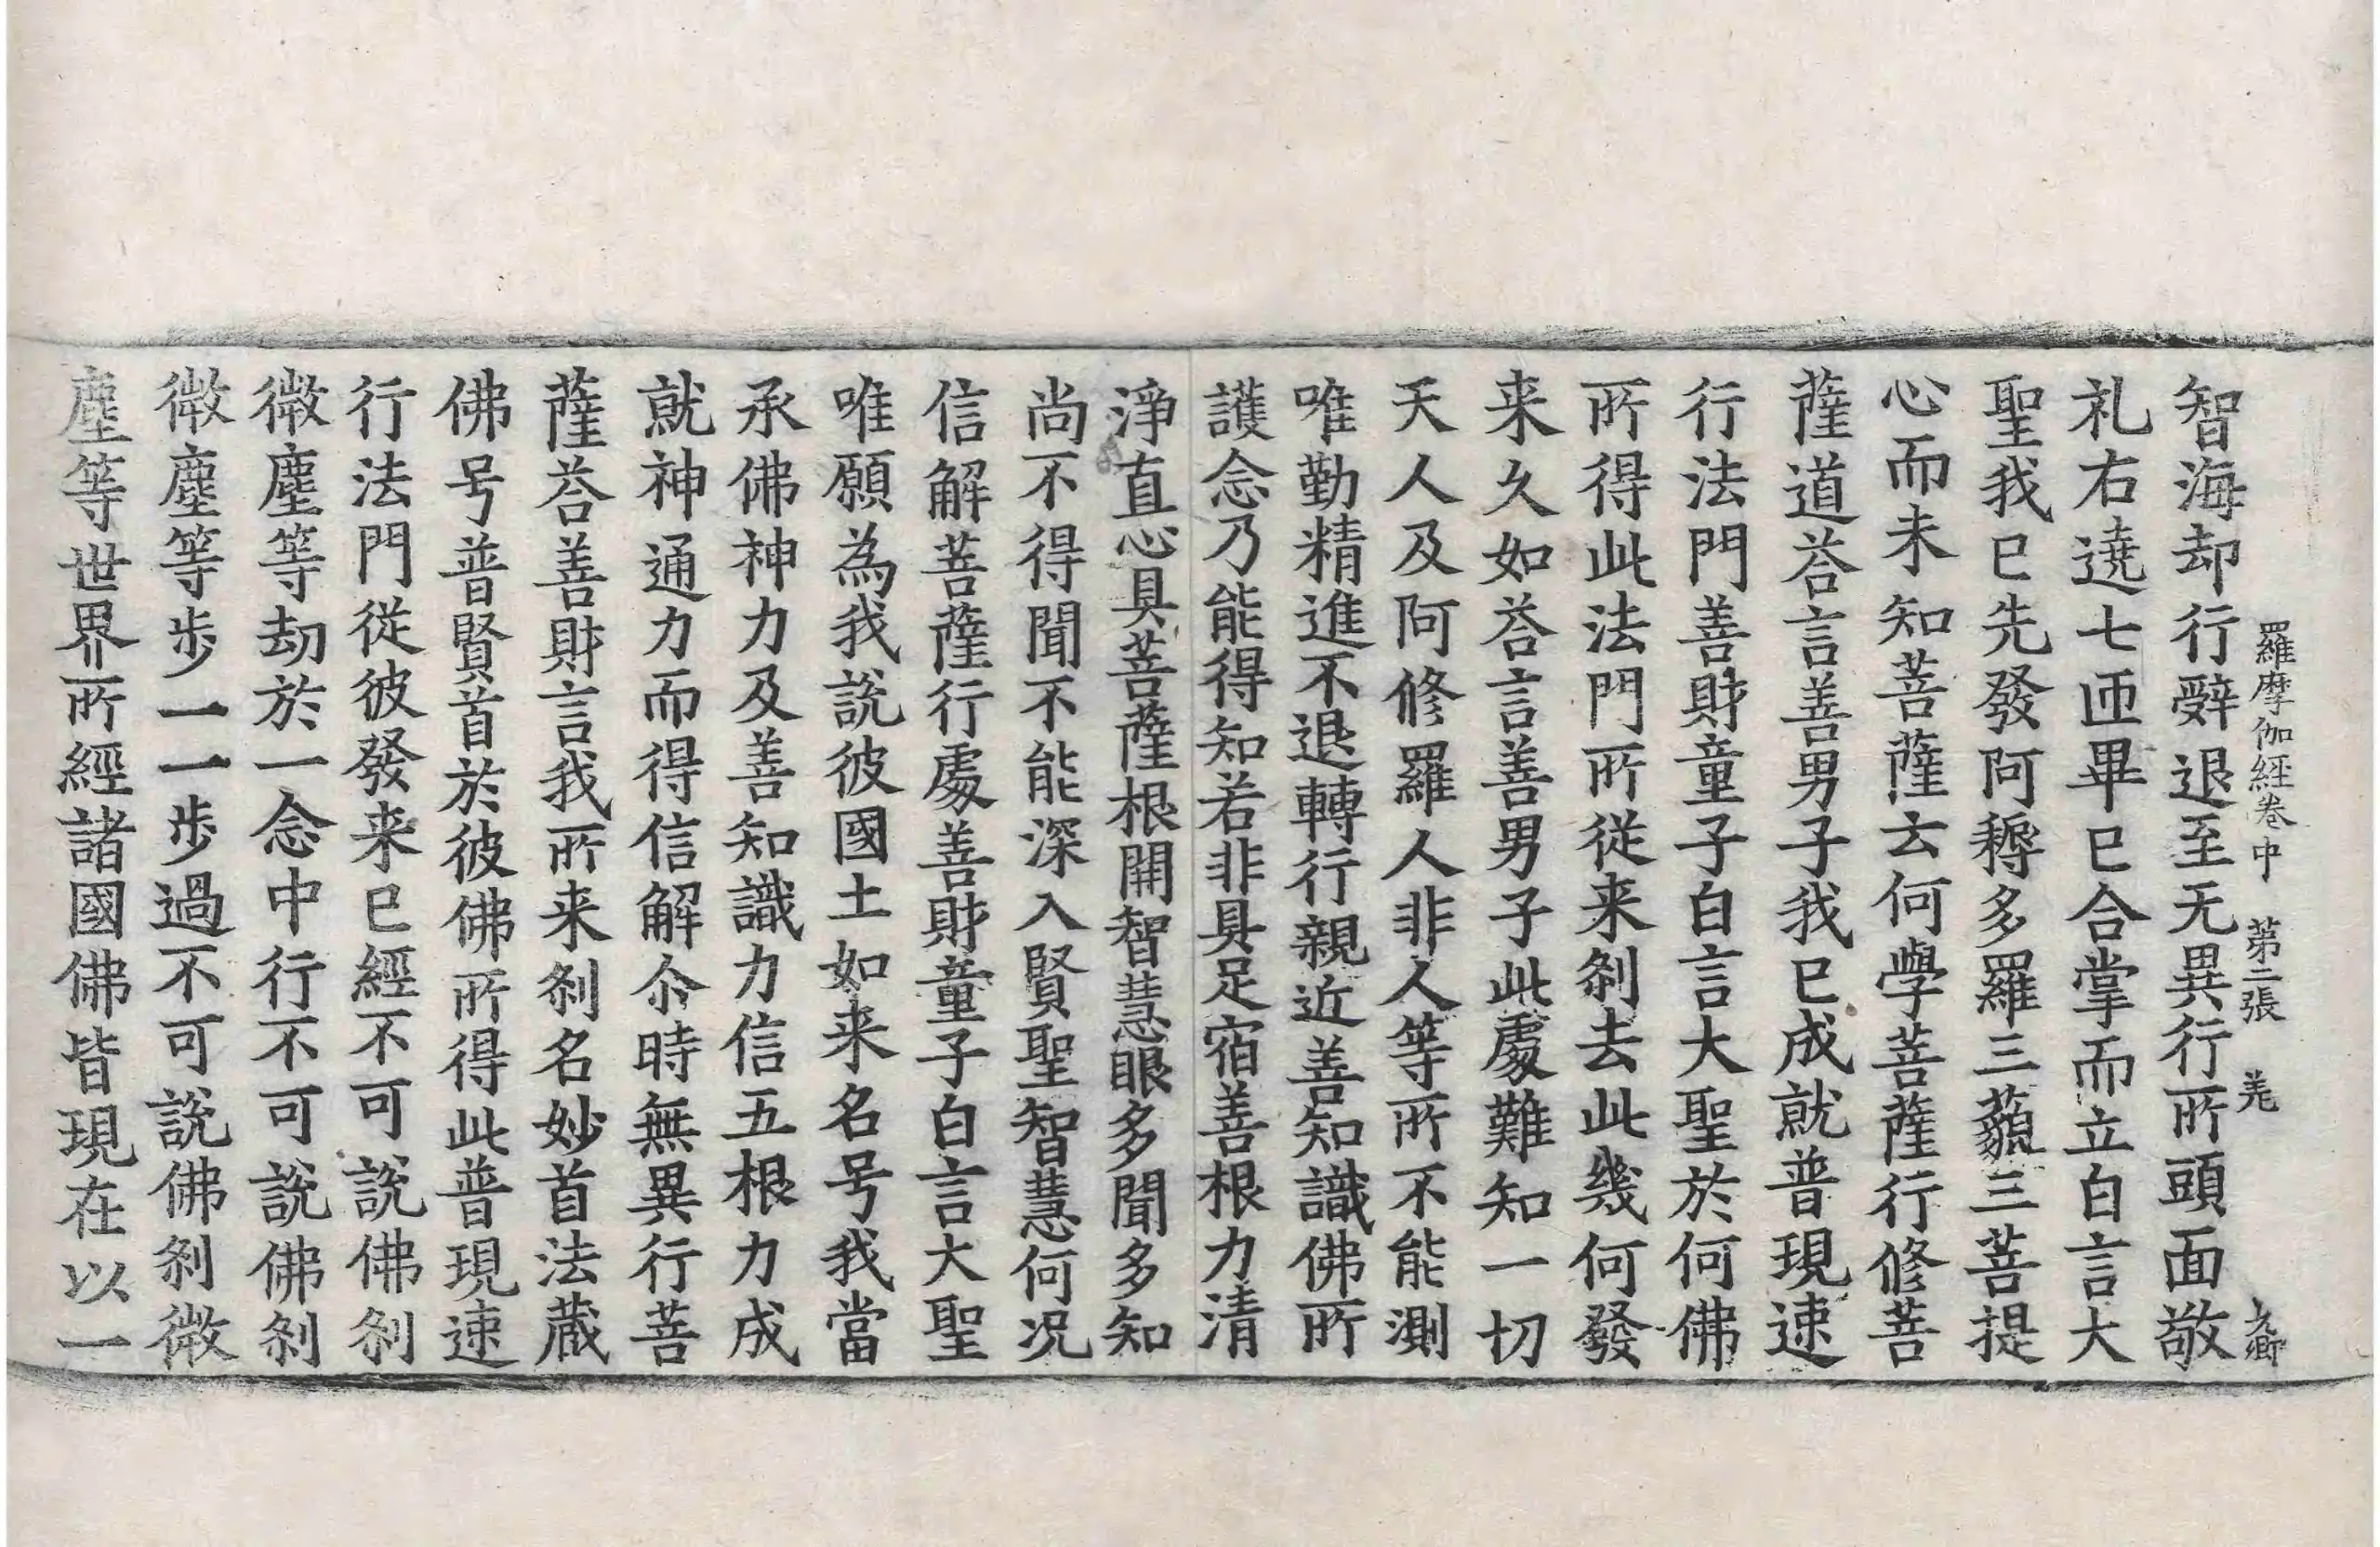 羅摩伽経卷中 第二張 羗
智海却行辤退至无異行所頭面敬
礼右遶七匝畢已合掌而立白言大
聖我已先發阿耨多羅三藐三菩提
心而未知菩薩云何學菩薩行修菩
薩道荅言善男子我已成就普現速
行法門善財童子白言大聖於何佛
所得此法門所從来剎去此幾何發
来久如荅言善男子此處難知一切
天人及阿修羅人非人等所不能測
唯勤精進不退轉行親近善知識佛所
護念乃能得知若非具足宿善根力清
淨直心具菩薩根開智慧眼多聞多知
尚不得聞不能深入賢聖智慧何况
信解菩薩行處善財童子白言大聖
唯願為我說彼國土如来名号我當
承佛神力及善知識力信五根力成
就神通力而得信解尒時無異行菩
薩荅善財言我所来剎名妙首法藏
佛号普賢首於彼佛所得此普現速
行法門從彼發来已經不可說佛剎
微塵等劫於一念中行不可說佛剎
微塵等步一一步過不可說佛剎微
塵等世界所經諸國佛皆現在以一